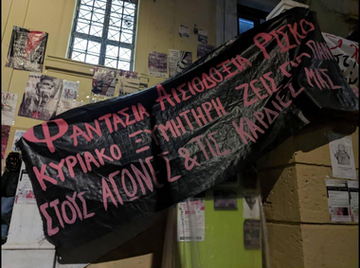 ΦΑΝΤΑΣΙΑ ΑΙΣΙΟΔΟΞΙΑ ΡΙΣΚΟ
ΚΥΡΙΑΚΟ ΞΥΜΗΤΗΡΗ ΖΕΙΣ ΓΙΑ ΠΑΝΤΑ
ΣΤΟΥΣ ΑΓΩΝΕΣ & ΤΙΣ ΚΑΡΔΙΕΣ ΜΑΣ